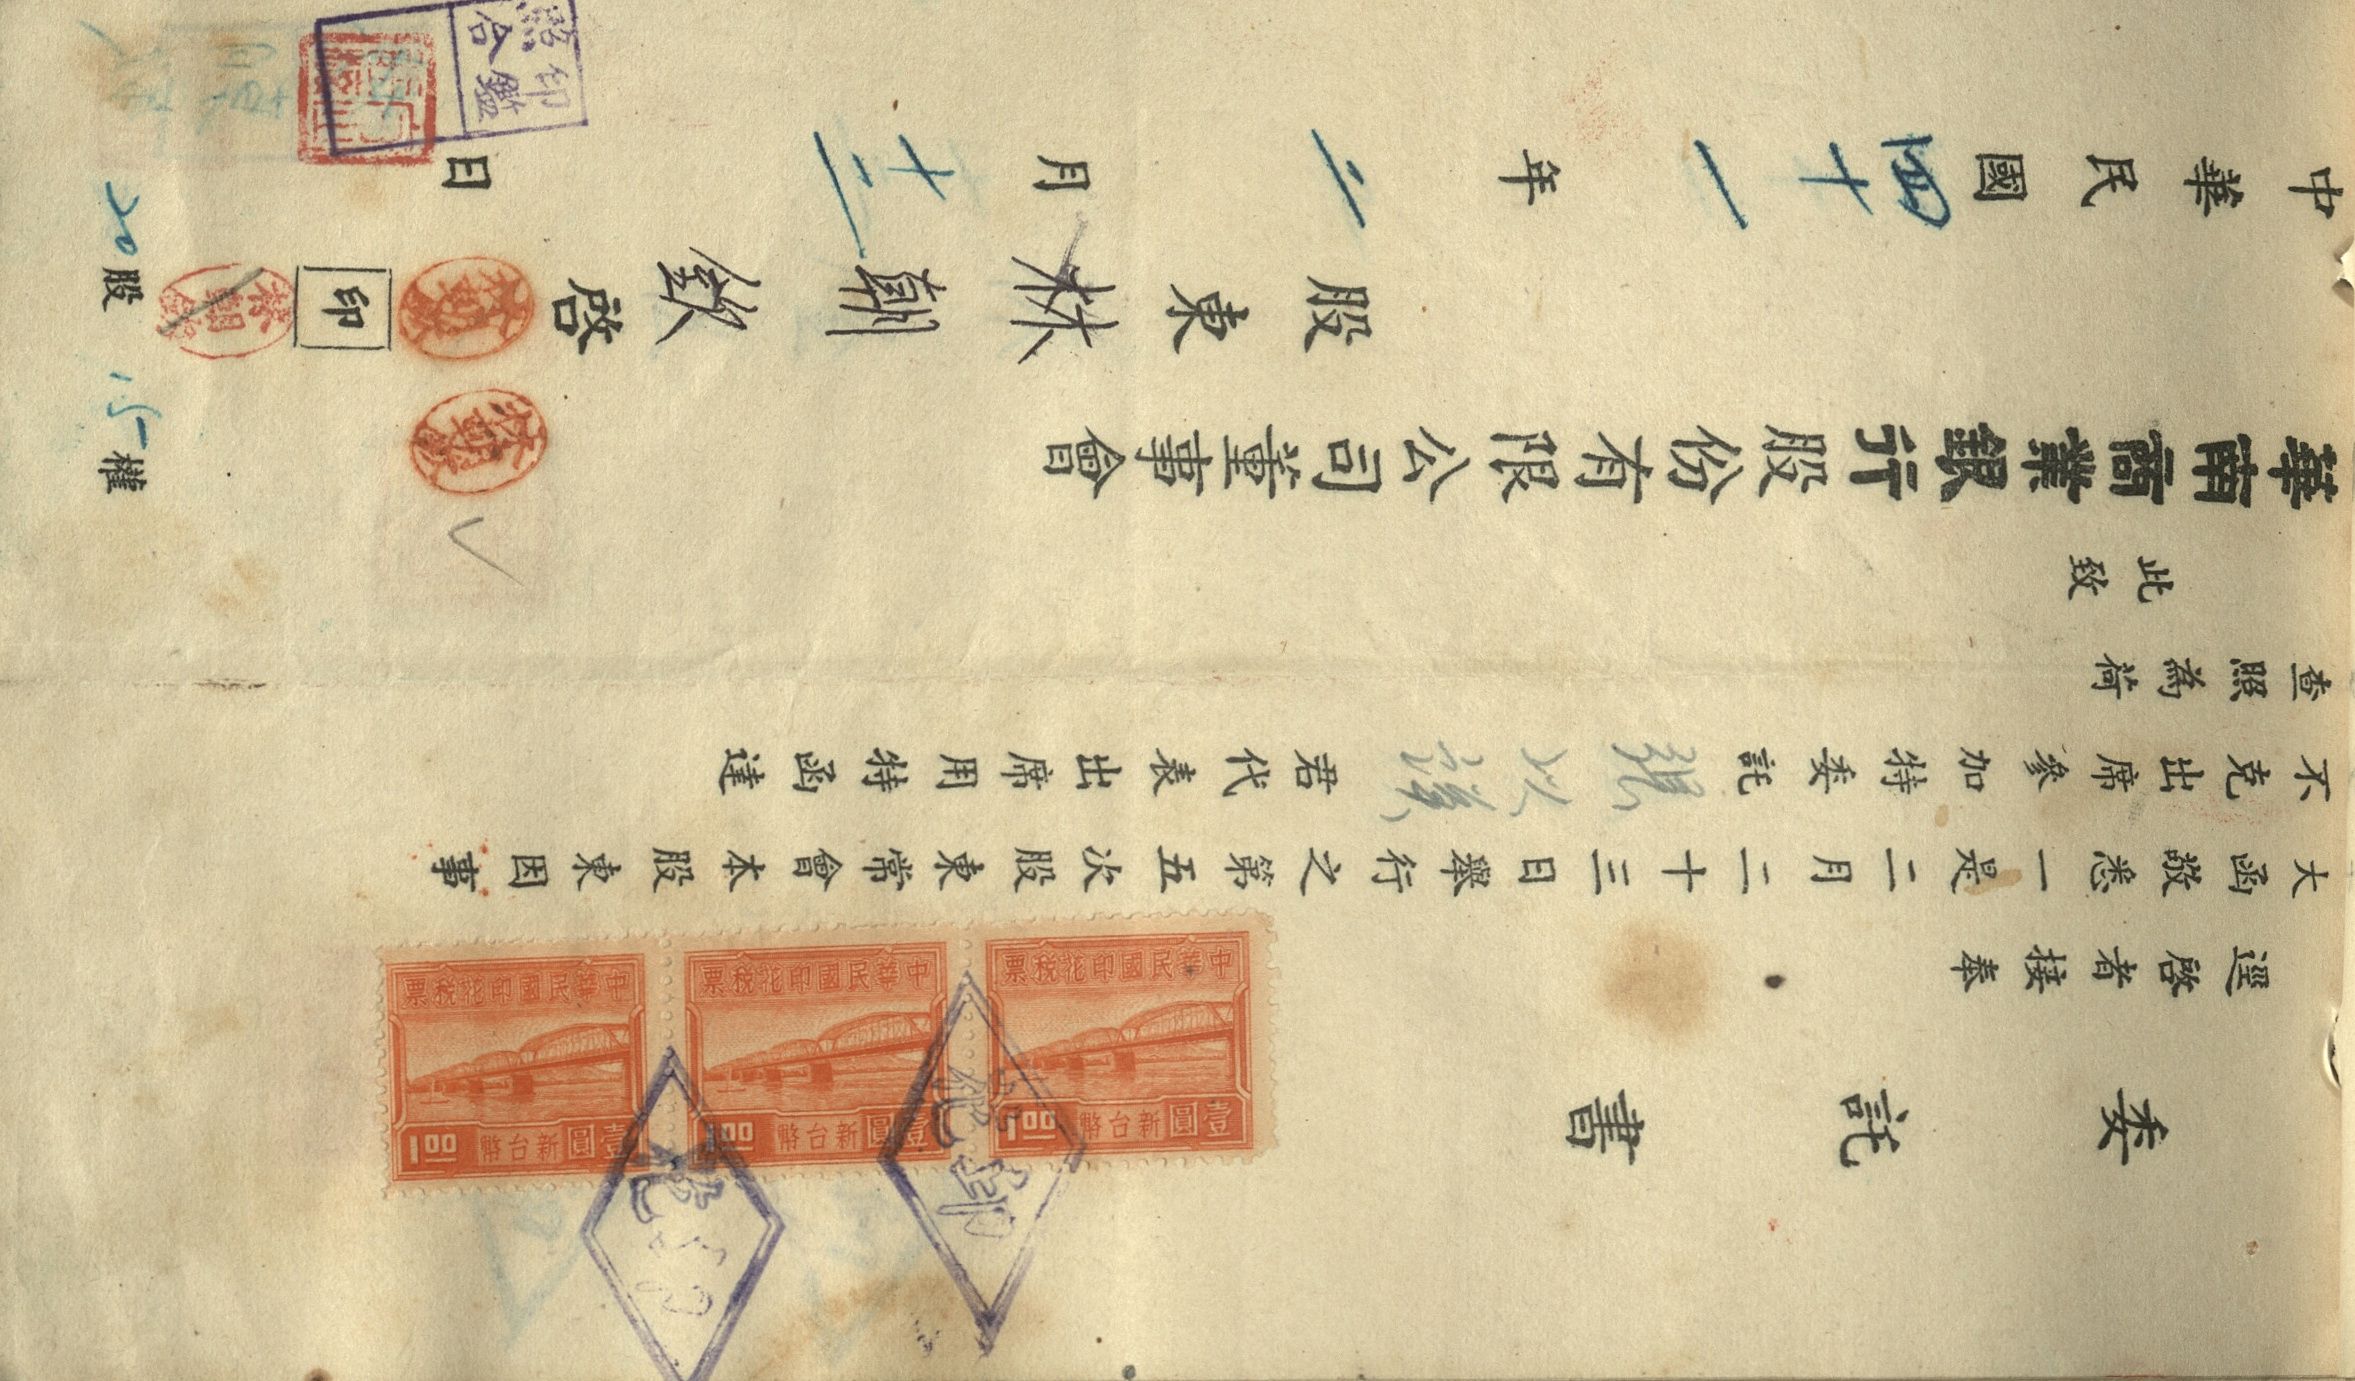 委託書
逕啓者接奉
大函敬悉一是二月二十三日舉行之第五次股東常會本股東因事
不克出席參加特委託張以謨君代表出席用特函達
查照為荷
此致
華南商業銀行股份有限公司董事會
股東林朝欽啓
印
中華民國四十一年二月十二日
20股
15權
印鑑
照合
中華民國印花稅票
壹圓新台幣1.00
中華民國印花稅票
壹圓新台幣1.00
中華民國印花稅票
壹圓新台幣1.00